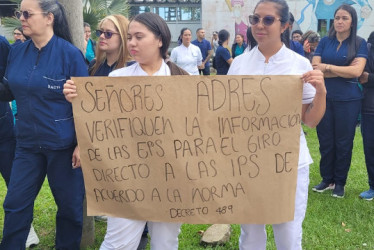 SEÑORES ADRES
VERIFIQUEN LA INFORMACIÓN
DE LAS EPS PARA EL GIRO
DIRECTO A LAS IPS DE
ACUERDO A LA NORMA
DECRETO 489